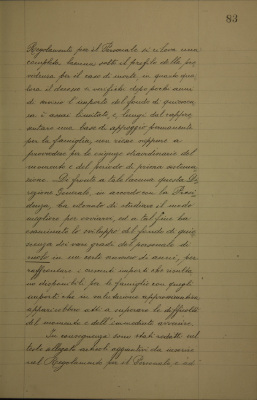 83
Regolamento per il Personale si rileva una
completa lacuna sotto il profilo della pre
videnza per il caso di morte, in quanto qua
lora il decesso si verifichi dopo pochi anni
di servizio l'importo del fondo di quiescenza
si è assai limitato e, lungi dal rappre
sentare una base di appoggio permanente
per la famiglia, non riesce neppure a
provvedere per le esigenze straordinarie del
momento e del periodo di prima
Di fronte a tale lacuna questa Di
rezione Generale, in accordo con la Presi
denza, ha ritenuto di studiare il modo
migliore per ovviarvi, ed a tal fine ha
esaminato lo sviluppo del fondo di quie
scenza dei vari gradi del personale di
ruolo in un certo numero di anni, per
raffrontare i singoli importi che
no disponibili per le famiglie con quegli
importi che in valutazione approssimativa
apparirebbero atti a superare le difficoltà
del momento e dell'immediato avvenire.
In conseguenza sono stati redatti nel
testo allegato articoli aggiuntivi da inserire
nel Regolamento per il Personale e